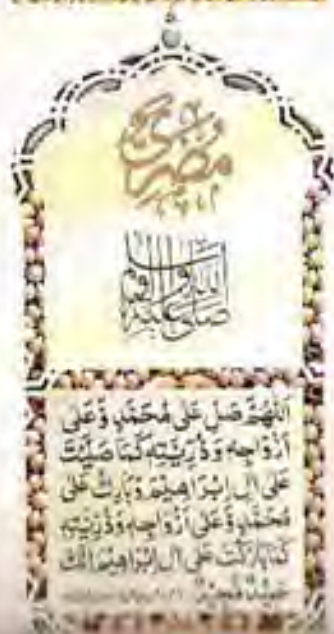 صلى عليه
اَللّٰهُمَّ صَلِّ عَلٰى مُحَمَّدٍ وَّعَلٰى
اَزْوَاجِهٖ وَذُرِّيَّتِهٖ كَمَا صَلَّيْتَ
عَلٰى اٰلِ اِبْرَاهِيْمَ وَبَارِكْ عَلٰى
مُحَمَّدٍ وَّعَلٰى اَزْوَاجِهٖ وَذُرِّيَّتِهٖ
كَمَا بَارَكْتَ عَلٰى اٰلِ اِبْرَاهِيْمَ اِنَّكَ
حَمِيْدٌ مَّجِيْدٌ